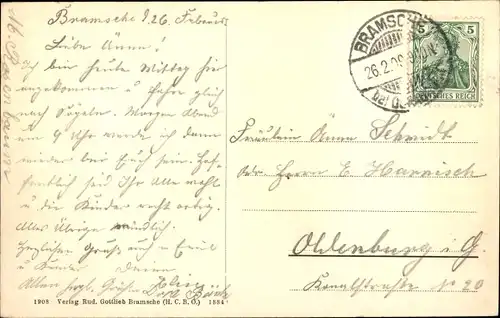 Bramsche d. 26. Februar
Liebe Änne!
Ich bin heute Mittag hier
angekommen u fahre gleich
nach Vögeln. Morgen Abend
um 9 Uhr werde ich dann
wieder bei Euch sein. Hof-
fentlich seid Ihr Alle wohl
u die Kinder recht artig.
Alles Übrige mündlich.
Herzlichen Gruß auch an Emil
u Kinder Deine
Allen herzl. Grüße
BRAMSCHE
26.2.09
5 5
DEUTSCHES REICH
Fräulein Änne Schmidt
adr. Herrn E. Harnisch
Oldenburg i. G.
Kanalstraße No 20
1908 Verlag Rud. Gottlieb Bramsche (H. C. B. O.) 1884